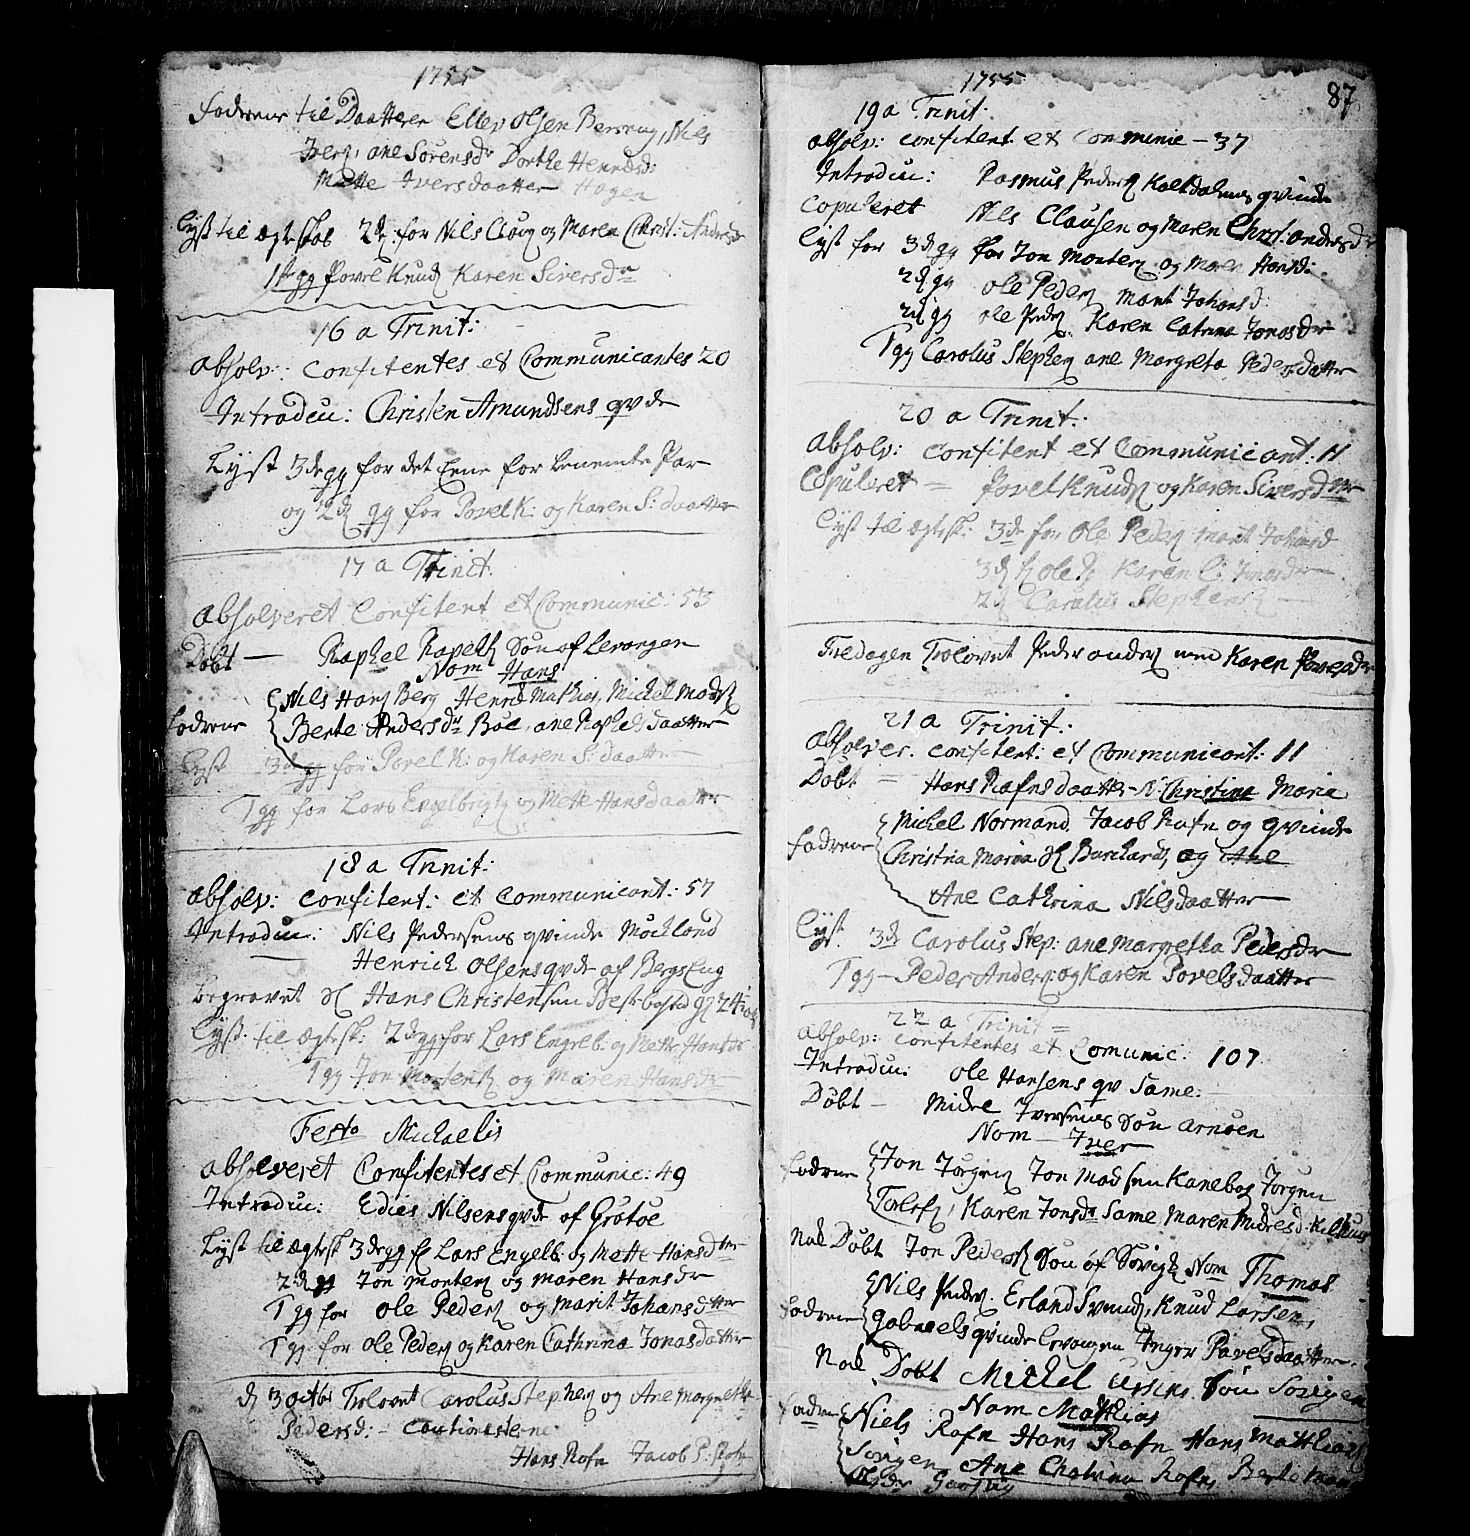 1755
Fadrene til Daatteren Ellev Olsen Berrug, Nils
Iver, ane Sörensdr Dorthe Henricsd:
Mette Iversdaatter Hagen
Lyst til ægteskab 2d: for Nils Clausz og Maren Christ: Andersdr
1ste gg Povel Knudz Karen Siversdr
16 a Trinit:
absolv: Confitentes et Communicantes 20
Introduc: Christen Amundsens qvde
Lyst 3de gg for det Ene for benemte Par
og 2d gg for Povel K: og Karen S: daatter
17 a Trinit.
absolveret Confitent et Communic: 53
Döbt — Raphel Rapelz Sön af Levangen
Nom Hans
Nils Hansz Berg Henric Mathias, Michel Madsz
Fadrene
Berte Andersdr Böe, ane Raphelsdaatter
Lyst 3de gg for Povel K: og Karen S: daatter
T gg for Lars Engelbrigtz og Mette Hansdaatter
18 a Trinit:
absolv: confitent: et communicant: 57
Introduc: Nils Pedersens qvinde Mocklund
Henrich Olsens qvde af Bergs Eng
begravet Hans Christensen
Lyst til ægtesk: 2de gg for Lars Engelb: og Mette Hansdr
T gg Jon Mortensz og Maren Hansdr
Festo Michaelis
absolveret Confitentes et Communic: 49
Introduc: Edies Nilsens qvde af Grötöe
Lyst til ægtesk 3de gg for Lars Engelb. og Mette Hansdtter
2d gg Jon Mortenz og Maren Hansdr
T gg for Ole Pederz og Marit Johansdtter
T gg for Ole Pederz og Karen Cathrina Jonasdaatter
d 3 octbr Trolovet Carolus Stephenz og Ane Margretha
Pedersd: – Cautionisterne
Hans Rafn Jacob P.
1755
87
19 a Trinit.
absolv: confitent et Communic – 37
Introduc: Rasmus Pederz Kaltdalens qvinde
Copuleret Nils Clausen og Maren Christ: andersdr
Lyst for 3de gg for Jon Mortenz og Maren Hansd:
2d gg Ole Pederz Marit Johansd:
2d gg Ole Pederz Karen Catrina Jonasdr
T gg Carolus Stephenz ane Margreta Pedersdatter
20 a Trinit:
absolv: confitent et Communicant: 11
Copuleret – Povel Knudz og Karen Siversdtter
Lyst til ægtesk: 3de for Ole Pederz Marit Johansd
3d Ole P. Karen C: Jonasdr
2d Carolus Stephensz
Fredagen Trolovet Peder andersz med Karen Povelsdr
21 a Trinit:
absolver. confitent: et Communicant: 11
Döbt – Hans Rafns daatter – N: Christina Maria
Michel Normand, Jacob Rafn og qvinde
Fadrene
Christina Maria Sl Burchards, og Ane
Ane Cathrina Nilsdaatter
Lyst. 3de Carolus Step: ane Margretha Pedersdr
T gg – Peder Andersz og Karen Povelsdaatter
22 a Trinit =
absolv: confitentes et Comunic: 107
Introduc: Ole Hansens qv Same.
Döbt – Midel Iversens Sön Arnöen
Nom – Iver
Fadrene Jon Jörgenz Jon Madsen Kanebog Jörgen
Tolefz, Karen Jonsdr Same Maren Midelsd:
Nok Döbt Jon Pedersz Sön af Sörvigh Nom Thomas
Nils Pedersz. Erland Svendz, Knud Larsen,
Fadrene
Gabriels qvinde Levangen Inger Pavelsdaatter.
Nok Döbt Michel Ursins Sön Sörigen
Nom Mathias
Fadrene Niels Rafn Hans Rafn Hans Mathias
Sörigen Ane Chatrina Rafns Berte
Olsdr